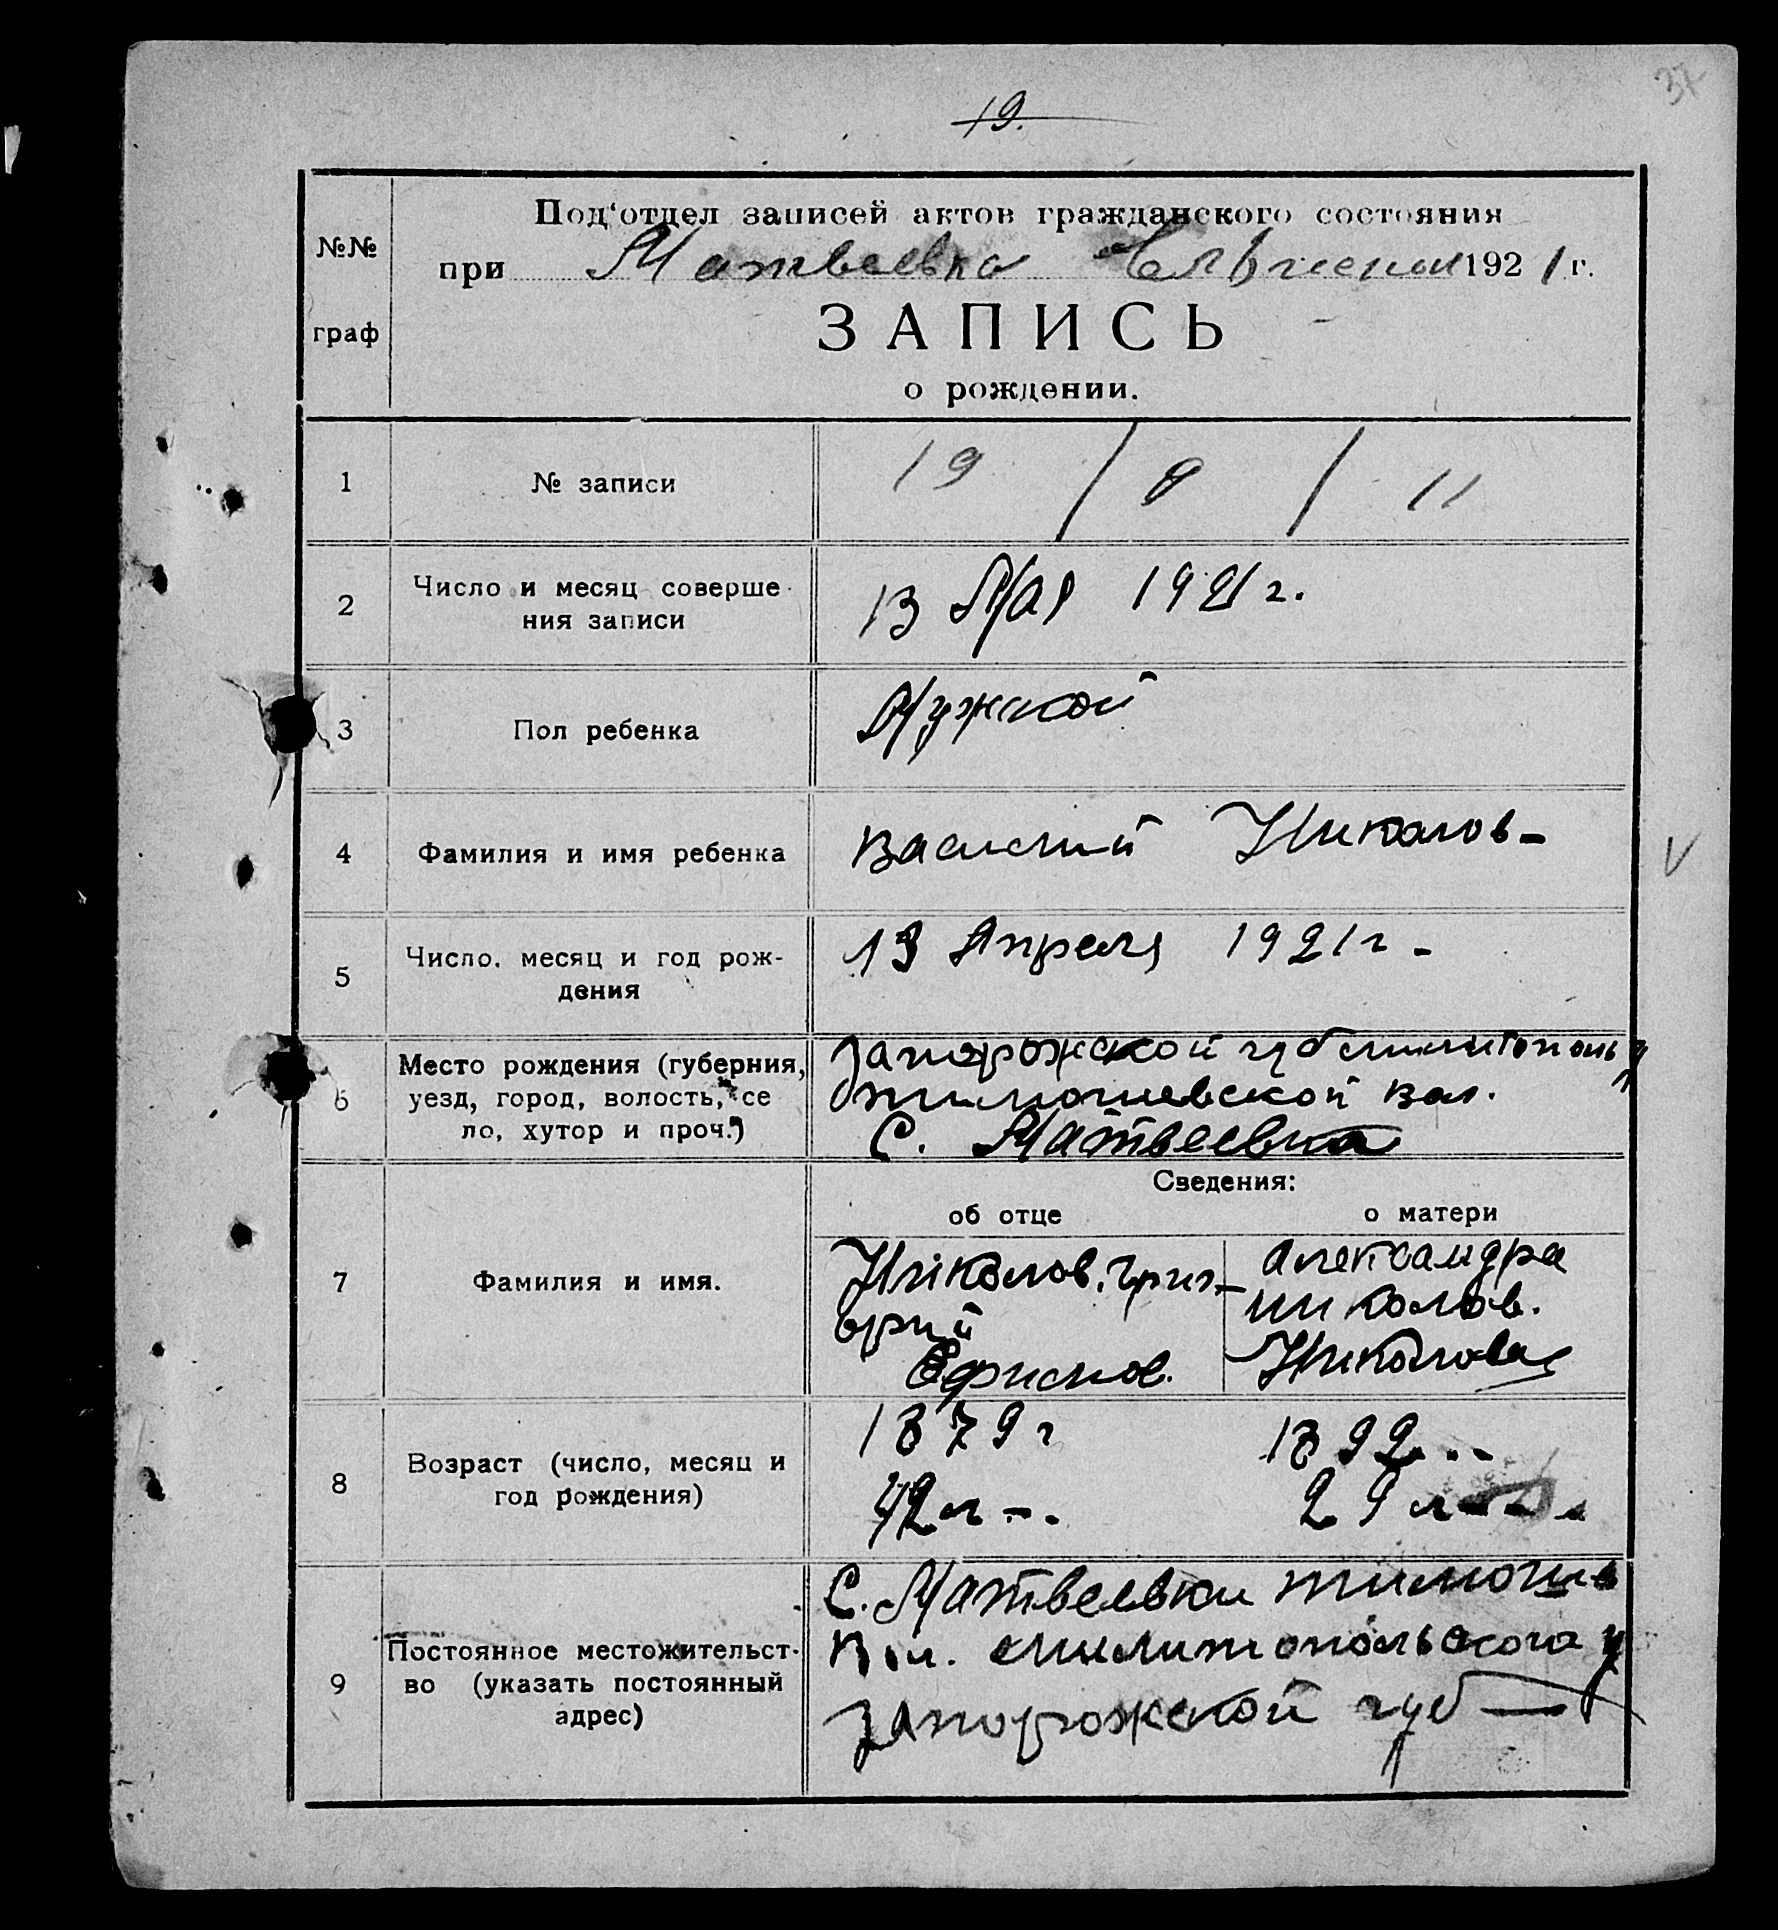 37
19.
№№
граф
Под‘отдел записей актов гражданского состояния
при Матвеевка 1921 г.
ЗАПИСЬ
о рождении.
1 № записи 19 / 8 / 11
2 Число и месяц соверше-
ния записи
13 Мая 1921 г.
3 Пол ребенка Мужской
4 Фамилия и имя ребенка Василий Николов-
V
5 Число, месяц и год рож-
дения
13 Апреля 1921 г -
6 Место рождения (губерния,
уезд, город, волость, се
ло, хутор и проч.)
Запорожской губ
вол.
С. Матвеевка
Сведения:
об отце о матери
7 Фамилия и имя.
Николов. Григ-
орий
Александра
николов.
Николова
8 Возраст (число, месяц и
год рождения)
1879 г 1892
42 л - . 29 л
9 Постоянное местожительст-
во (указать постоянный
адрес)
С. Матвеевки
Вол. у
Запорожской губ —